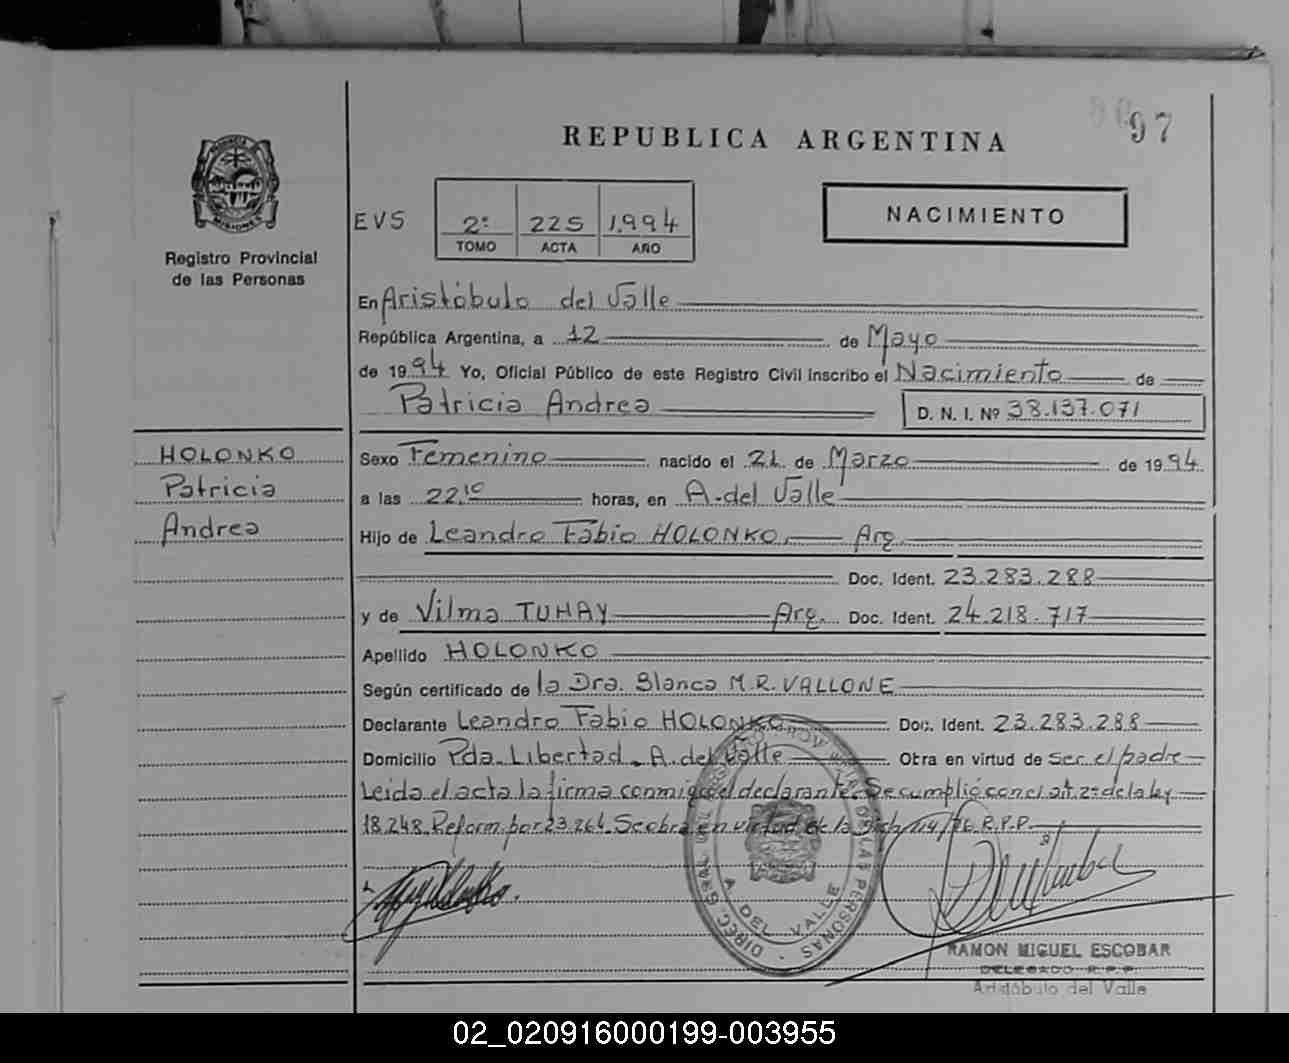 0097
REPUBLICA ARGENTINA
PROVINCIA DE MISIONES
Registro Provincial
de las Personas
EVS
2º 225 1.994
TOMO ACTA AÑO
NACIMIENTO
En Aristóbulo del Valle
República Argentina, a 12 de Mayo
de 1994 Yo, Oficial Público de este Registro Civil inscribo el Nacimiento de
Patricia Andrea D. N. I. Nº 38.137.071
HOLONKO
Patricia
Andrea
Sexo Femenino nacido el 21 de Marzo de 1994
a las 22,10 horas, en A. del Valle
Hijo de Leandro Fabio HOLONKO, Arg.
Doc. Ident. 23.283.288
y de Vilma TUHAY Arg. Doc. Ident. 24.218.717
Apellido HOLONKO
Según certificado de la Dra. Blanca M.R. VALLONE
Declarante Leandro Fabio HOLONKO Doc. Ident. 23.283.288
Domicilio Pda. Libertad. A. del Valle Obra en virtud de ser el padre
Leida el acta la firma conmigo el declarante. Se cumplió con el art. 2º de la ley
18.248. Reform. por 23.264. Se obra en virtud de la 114/76 R.P.P.
DIREC. GRAL. DEL REGISTRO PROV. DE LAS PERSONAS
A. DEL VALLE
RAMON MIGUEL ESCOBAR
DELEGADO R.P.P.
Aristóbulo del Valle
02_020916000199-003955